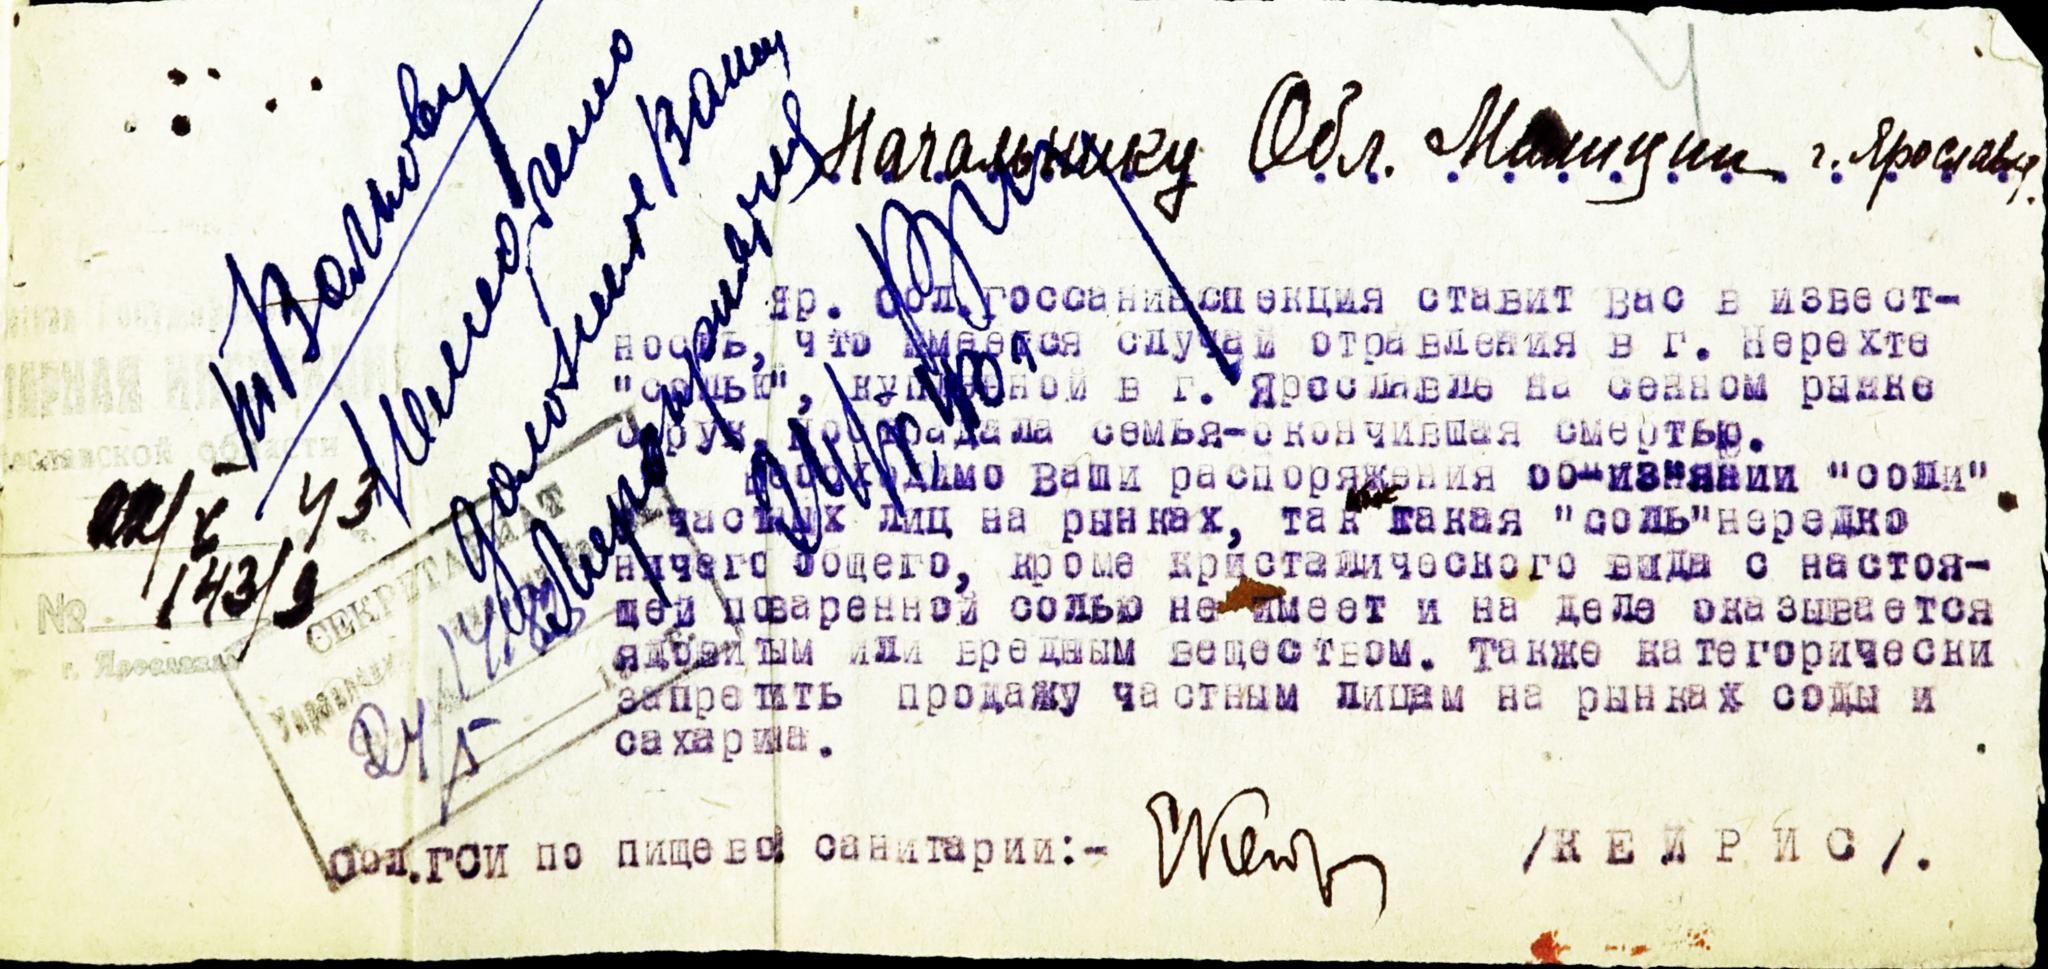 т. Волкову
Немедленно
доложите Ваши
мероприятия
Начальнику Обл. Милиции г. Ярославля.
22/X 43
143/9
№
г. Ярославль
СЕКРЕТАРИАТ
24/5
Яр. обл.госсанинспекция ставит Вас в извест-
ность, что имеется случай отравления в г. Нерехте
"солью", купленной в г. Ярославле на сенном рынке
с рук, пострадала семья-окончившая смертью.
Необходимо Ваши распоряжения об-из"янии "соли"
частных лиц на рынках, так как такая "соль"нередко
ничего общего, кроме кристаллического вида с настоя-
щей поваренной солью не имеет и на деле оказывается
ядовитым или вредным веществом. Также категорически
запретить продажу частным лицам на рынках соды и
сахарина.
Обл.ГСИ по пищевой санитарии:-
/КЕЙРИС/.